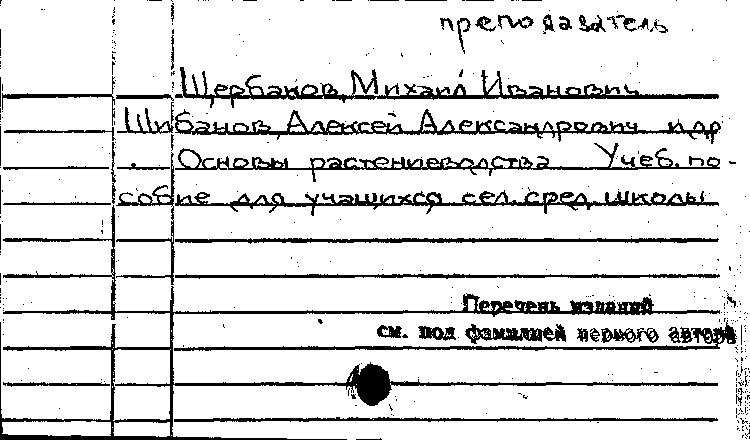 преподаватель
Щербаков, Михаил Иванович
Шибанов, Алексей Александрович и др
Основы растениеводства Учеб. по-
собие для учащихся сел. сред. школы
Перечень изданий
см. под фамилией первого автора